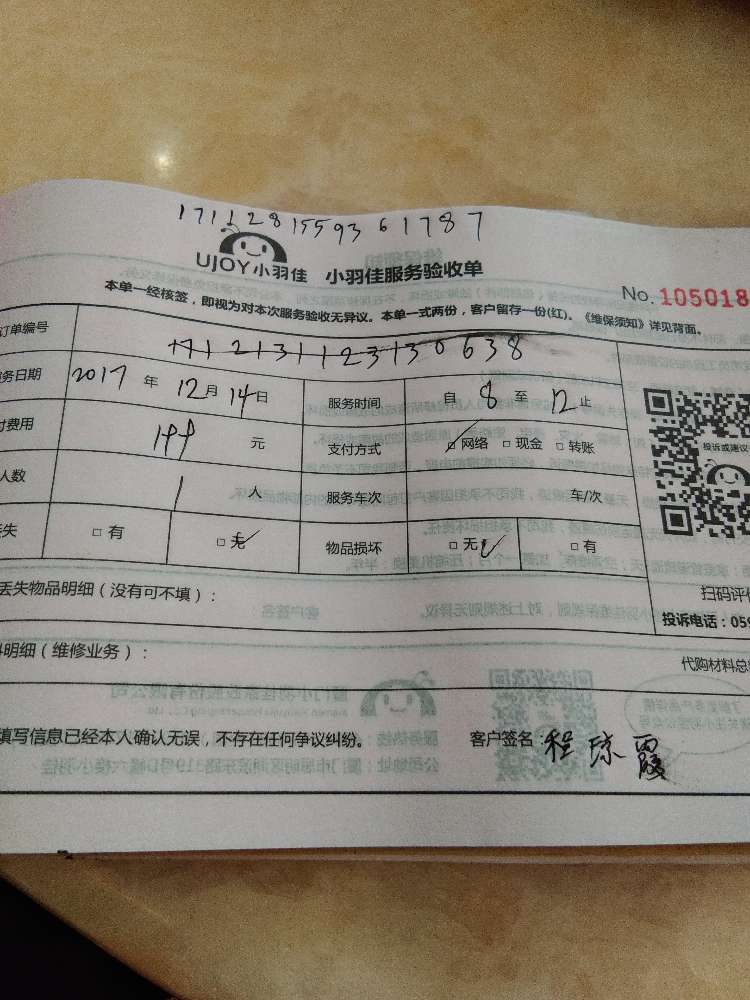 17112815593 61787
UJOY小羽佳 小羽佳服务验收单
No. 105018
本单一经核签，即视为对本次服务验收无异议。本单一式两份，客户留存一份(红)。《维保须知》详见背面。
订单编号 1712131123130638
务日期 2017 年 12 月 14 日 服务时间 自 8 至 12 止
付费用 199 元 支付方式 □网络 □现金 □转账
人数 1 人 服务车次 车/次
丢失 □有 □无 物品损坏 □无 □有
投诉或建议
扫码评价
丢失物品明细（没有可不填）：
投诉电话：059
料明细（维修业务）：
代购材料总
填写信息已经本人确认无误，不存在任何争议纠纷。 客户签名：程琼霞